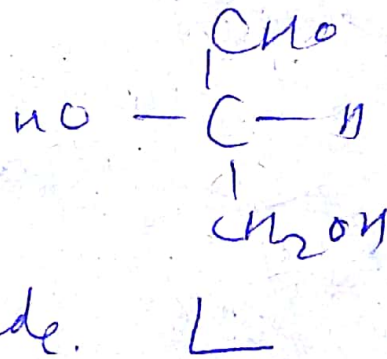 CHO
HO — C — H
CH₂OH
de. L